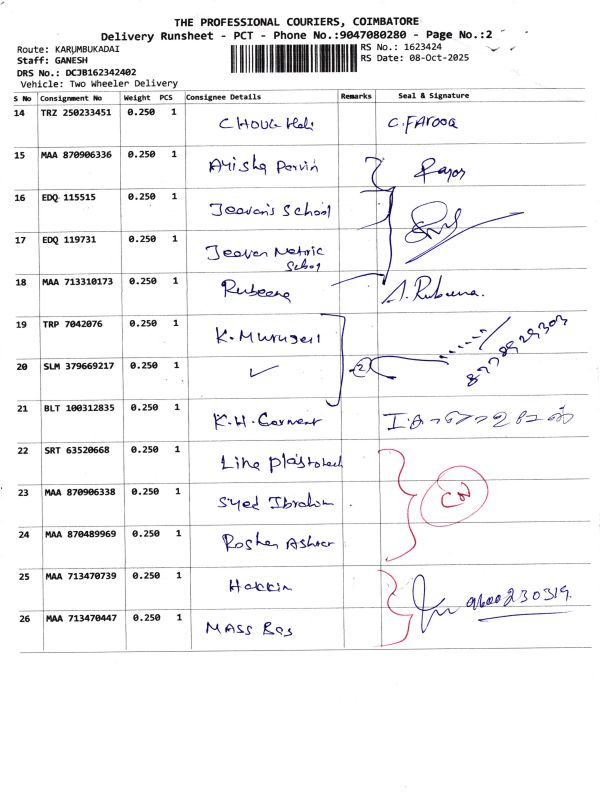 THE PROFESSIONAL COURIERS, COIMBATORE
Delivery Runsheet - PCT - Phone No.:9047080280 - Page No.:2
Route: KARUMBUKADAI RS No.: 1623424
Staff: GANESH RS Date: 08-Oct-2025
DRS No.: DCJB162342402
Vehicle: Two Wheeler Delivery
S No Consignment No Weight PCS Consignee Details Remarks Seal & Signature
14 TRZ 250233451 0.250 1 C.FAROOQ
15 MAA 870906336 0.250 1 Ayisha Parvin
16 EDQ 115515 0.250 1 Jeevan's School
17 EDQ 119731 0.250 1 Jeevan Metric
School
18 MAA 713310173 0.250 1 Rubeena A. Rubeena.
19 TRP 7042076 0.250 1 K. Murugesh
20 SLM 379669217 0.250 1 ✓ 2
21 BLT 100312835 0.250 1 K.H. Garment
22 SRT 63520668 0.250 1 Line Plastotech
23 MAA 870906338 0.250 1 Syed Ibrahim CN
24 MAA 870489969 0.250 1 Roshan
25 MAA 713470739 0.250 1 Hakkim 9600230319.
26 MAA 713470447 0.250 1 MASS